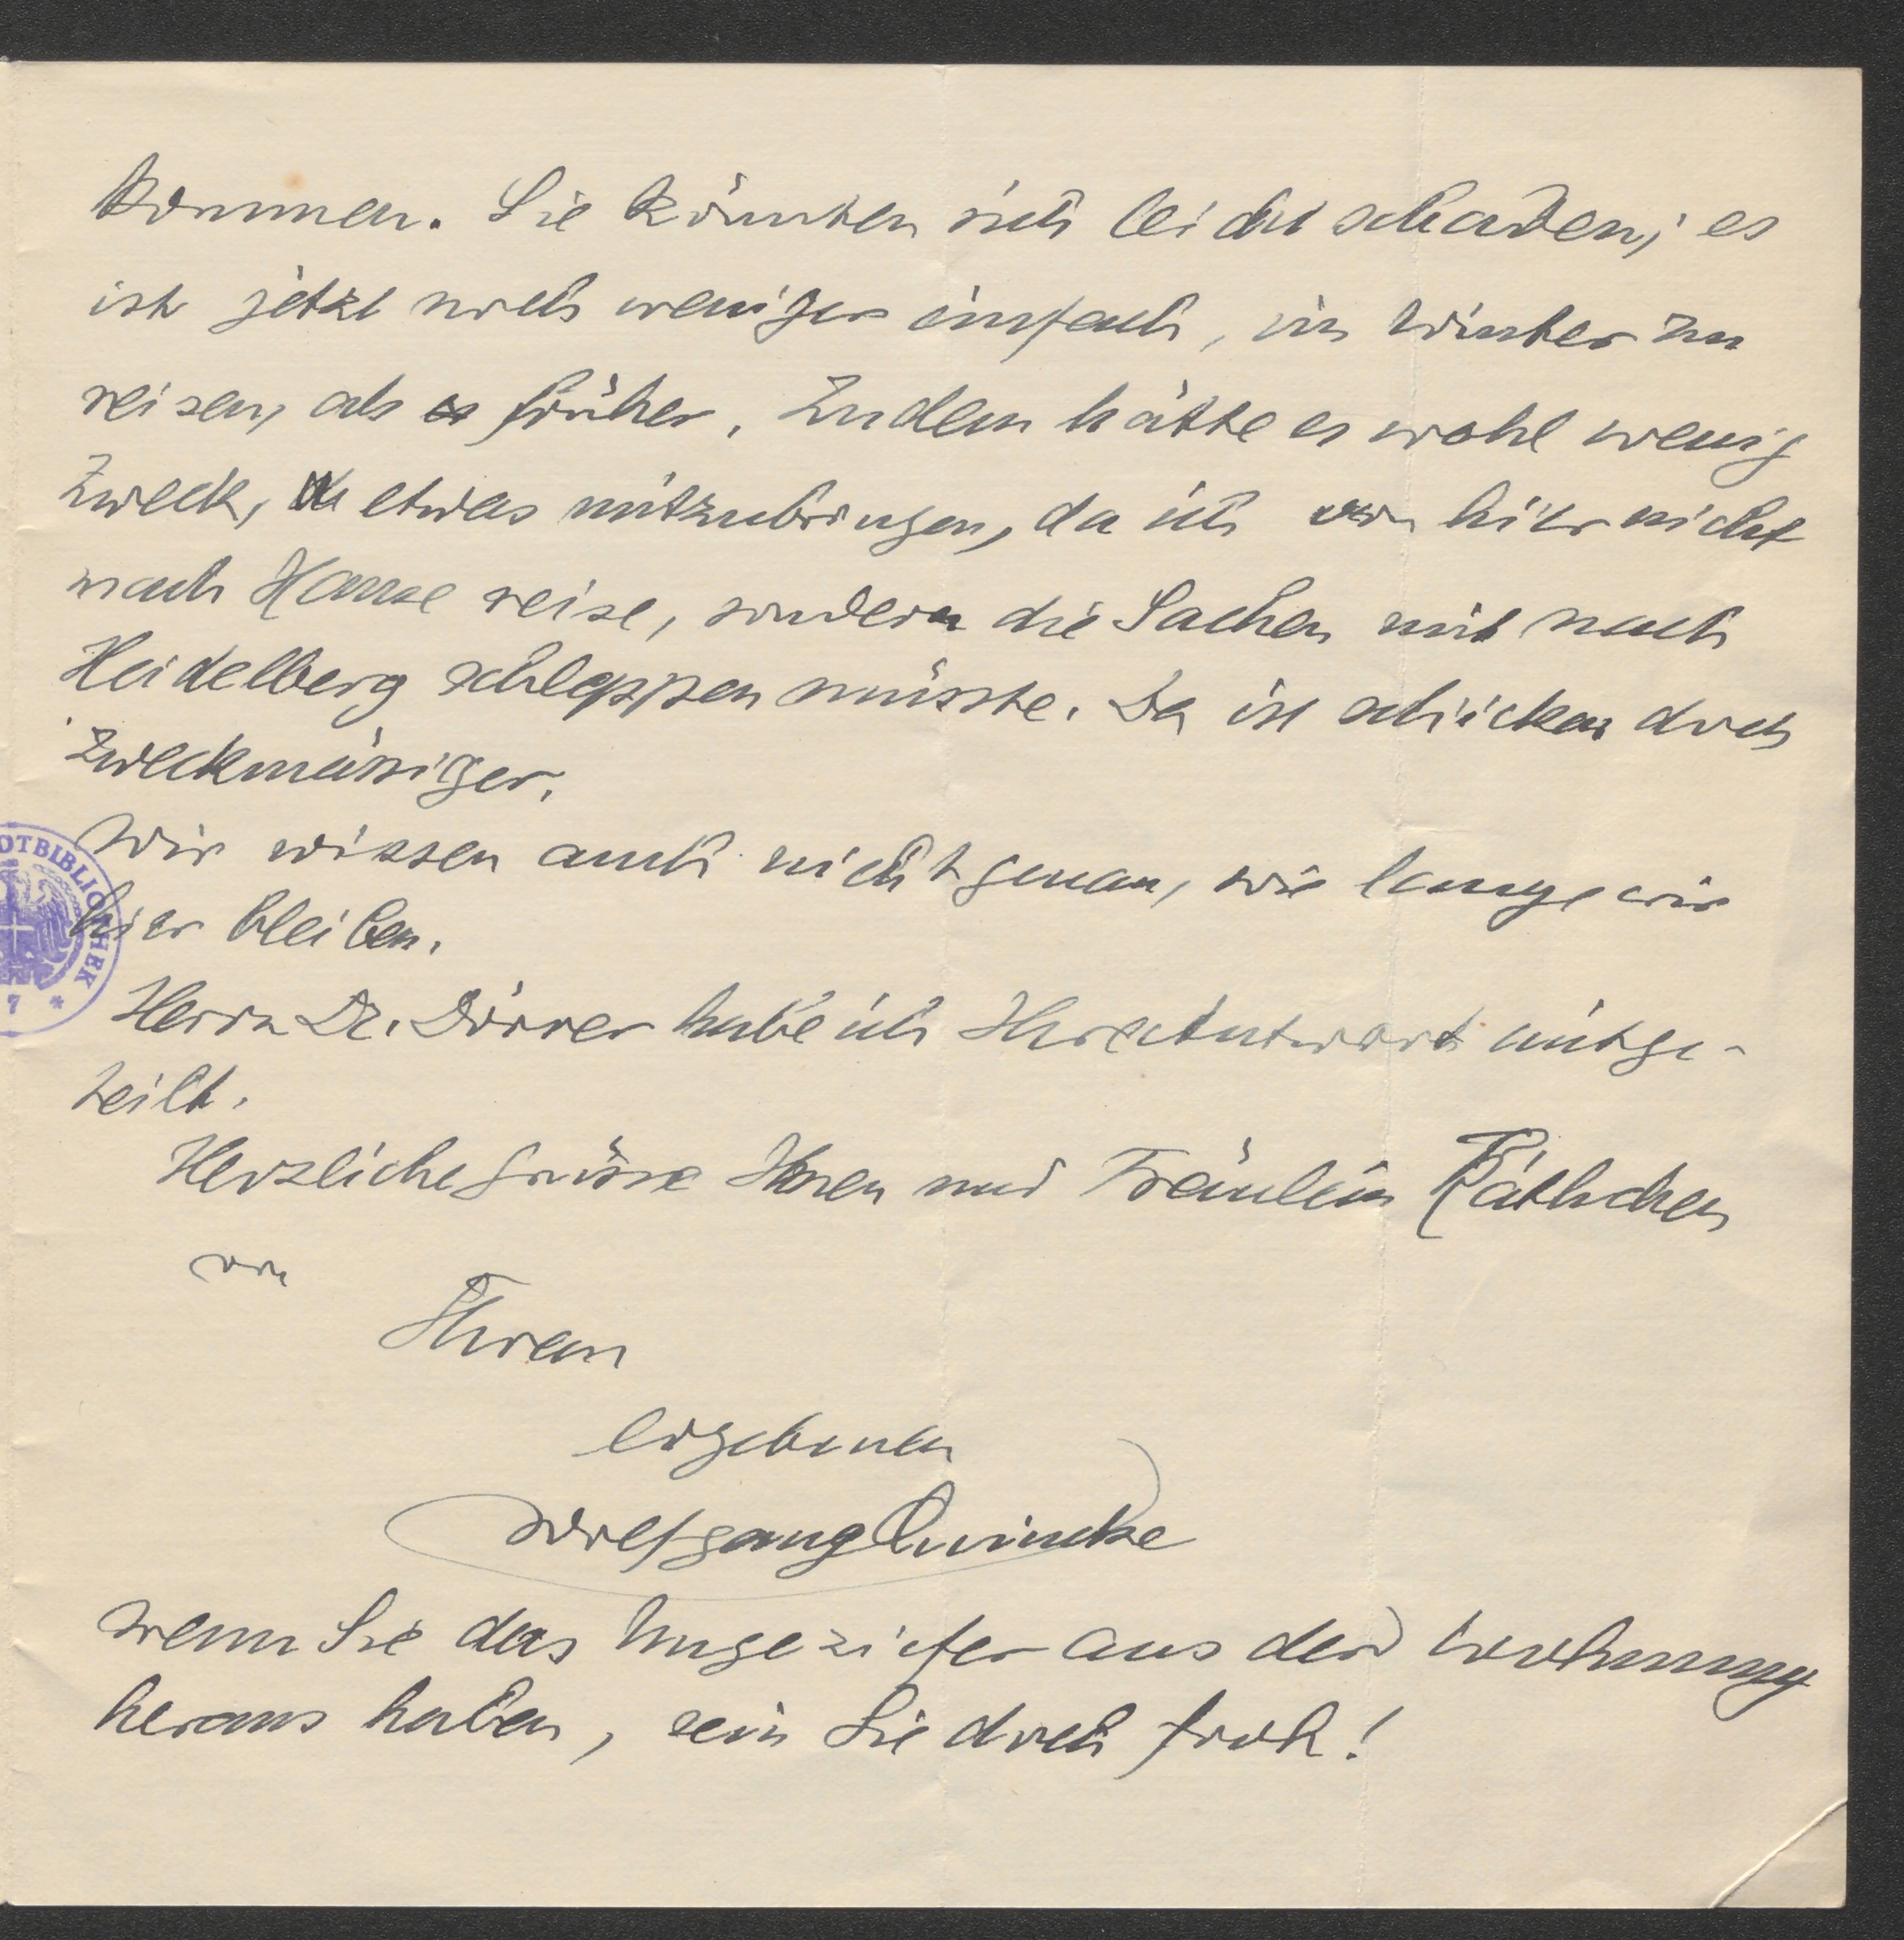 kommen. Sie könnten sich leicht schaden; es
ist jetzt noch weniger einfach, im Winter zu
reisen, als früher. Zudem hätte es wohl wenig
Zweck, etwas mitzubringen, da ich von hier nicht
nach Hause reise, sondern die Sachen mit nach
Heidelberg schleppen müsste. Da ist schicken doch
zweckmässiger.
Wir wissen auch nicht genau, wie lange wir
hier bleiben.
Herrn Dr. Dörrer habe ich Ihre Antwort mitge-
teilt.
Herzliche Grüsse Ihnen und Fräulein Käthchen
von
Ihrem
ergebenen
Wolfgang Quincke
Wenn Sie das Ungeziefer aus der Wohnung
heraus haben, sein Sie doch froh!
DTBIBLIOTHEK
7 *